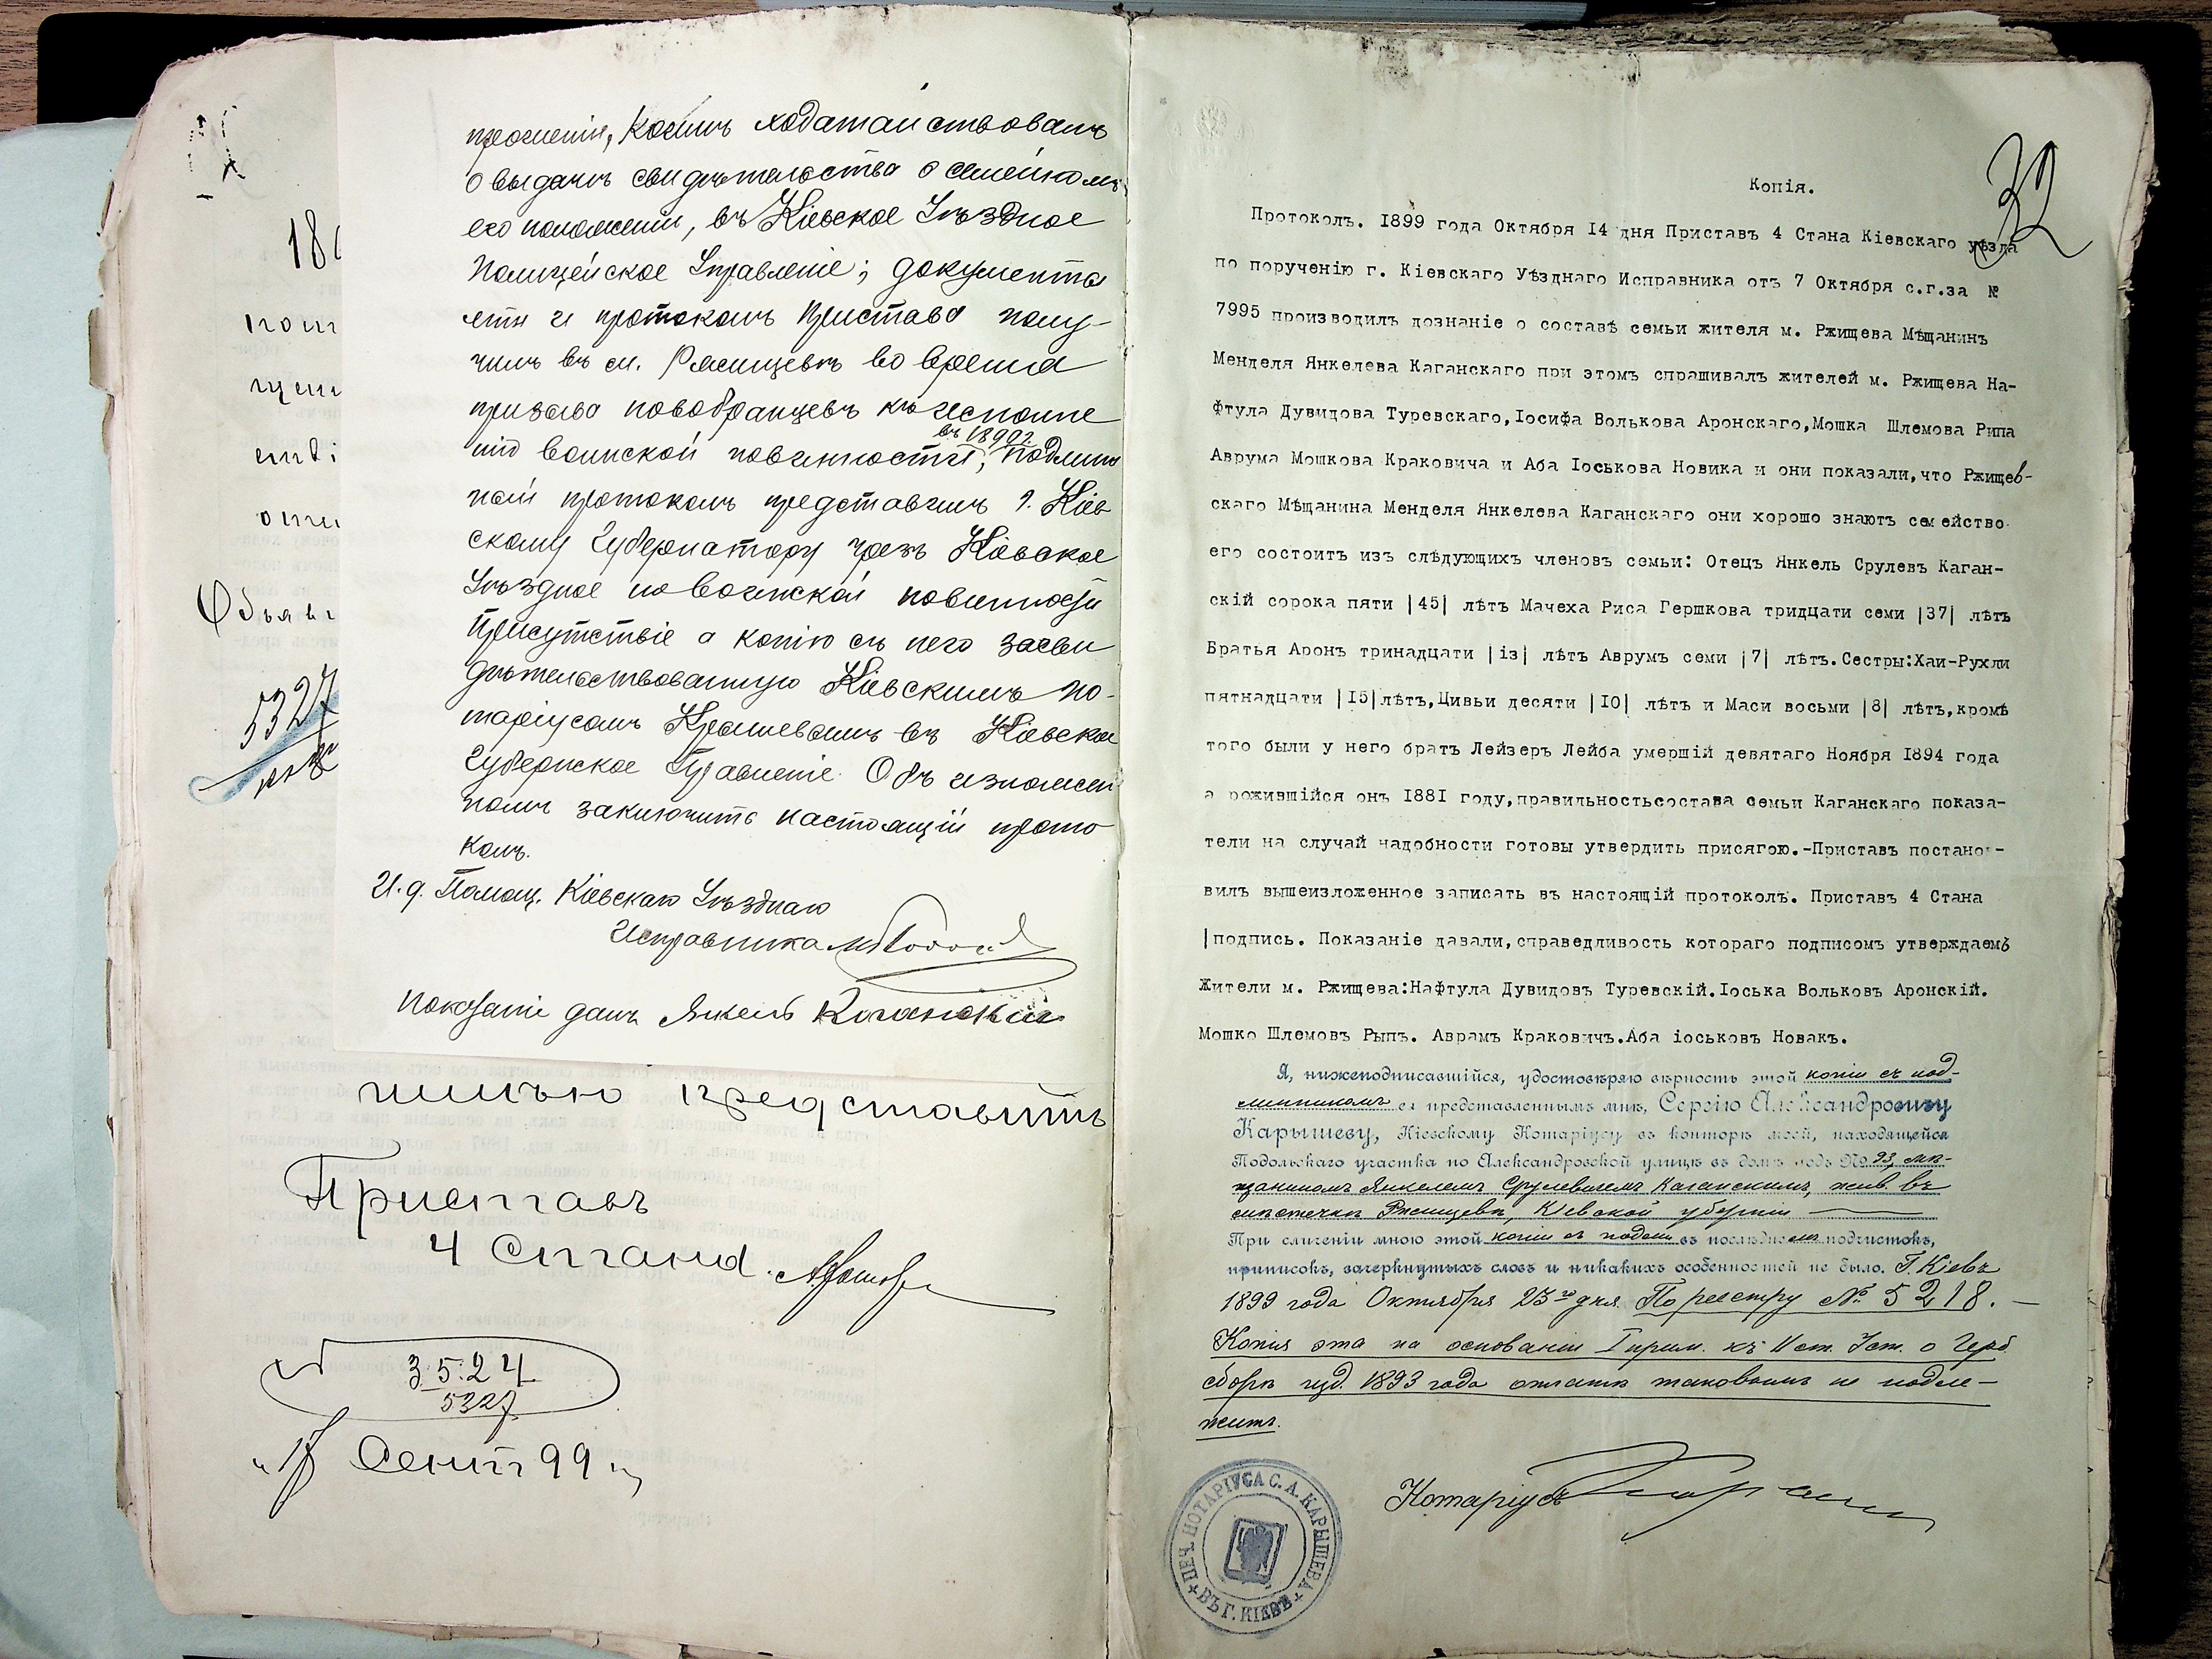 прошенія, коимъ ходатайствовалъ
о выдачѣ свидѣтельства о семейномъ
его положеніи, въ Кіевское Уѣздное
Полицейское Управленіе; документы
эти и протоколъ Пристава полу-
чилъ въ м. Ржищевѣ во время
призыва новобранцевъ къ исполне
нію воинской повинности въ 1899 г., подлин
ный протоколъ представилъ г. Кіев
скому Губернатору чрезъ Кіевское
Уѣздное по воинской повинности
Присутствіе а копію съ него засви
дѣтельствованную Кіевскимъ но-
таріусомъ Карышевымъ въ Кіевское
Губернское Правленіе. Объ изложен
номъ заключить настоящій прото
колъ.
И. д. Помощ. Кіевскаго Уѣзднаго
Исправника
Показаніе далъ Янкель Каганскій
186
Объяв
5327
представить
Приставъ
4 Стана
3524
5327
"17 Сент 99 г."
32
Копія.
Протоколъ. 1899 года Октября 14 дня Приставъ 4 Стана Кіевскаго уѣзда
по порученію г. Кіевскаго Уѣзднаго Исправника отъ 7 Октября с.г.за №
7995 производилъ дознаніе о составѣ семьи жителя м. Ржищева Мѣщанинъ
Менделя Янкелева Каганскаго при этомъ спрашивалъ жителей м. Ржищева На-
фтула Дувидова Туревскаго,Іосифа Волькова Аронскаго,Мошка Шлемова Рипа
Аврума Мошкова Краковича и Аба Іоськова Новика и они показали,что Ржищев-
скаго Мѣщанина Менделя Янкелева Каганскаго они хорошо знаютъ семейство
его состоитъ изъ слѣдующихъ членовъ семьи: Отецъ Янкель Срулевъ Каган-
скій сорока пяти |45| лѣтъ Мачеха Риса Гершкова тридцати семи |37| лѣтъ
Братья Аронъ тринадцати |із| лѣтъ Аврумъ семи |7| лѣтъ.Сестры:Хаи-Рухли
пятнадцати |15|лѣтъ,Цивьи десяти |10| лѣтъ и Маси восьми |8| лѣтъ,кромѣ
того были у него братъ Лейзеръ Лейба умершій девятаго Ноября 1894 года
а рожившійся онъ 1881 году,правильностьсостава семьи Каганскаго показа-
тели на случай надобности готовы утвердить присягою.-Приставъ постано-
вилъ вышеизложенное записать въ настоящій протоколъ. Приставъ 4 Стана
|подпись. Показаніе давали,справедливость котораго подписомъ утверждаемъ
Жители м. Ржищева:Нафтула Дувидовъ Туревскій.Іоська Вольковъ Аронскій.
Мошко Шлемовъ Рыпъ. Аврамъ Краковичъ.Аба іоськовъ Новакъ.
Я, нижеподписавшійся, удостовѣряю вѣрность этой копіи съ под-
линникомъ ея представленнымъ мнѣ, Сергѣю Александровичу
Карышеву, Кіевскому Нотаріусу въ конторѣ моей, находящейся
Подольскаго участка по Александровской улицѣ въ домѣ подъ № 93, мѣ-
щаниномъ Янкелемъ Срулевичемъ Каганскимъ, жив. въ
мѣстечкѣ Ржищевѣ, Кіевской губерніи
При сличеніи мною этой копіи съ подлин въ послѣднемъ подчистокъ,
приписокъ, зачеркнутыхъ словъ и никакихъ особенностей не было. Г. Кіевъ
1899 года Октября 23го дня. По реестру № 5218.
Копія эта на основаніи I прим. къ 11 ст. Уст. о Герб
сборѣ изд. 1893 года оплатѣ таковымъ не подле-
житъ.
Нотаріусъ
ПЕЧ. НОТАРІУСА С. А. КАРЫШЕВА + ВЪ Г. КІЕВѢ +